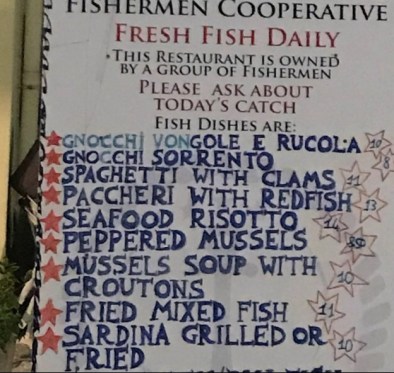 FISHERMEN COOPERATIVE
FRESH FISH DAILY
• THIS RESTAURANT IS OWNED
BY A GROUP OF FISHERMEN
PLEASE ASK ABOUT
TODAY'S CATCH
FISH DISHES ARE:
GNOCCHI VONGOLE E RUCOLA 10
GNOCCHI SORRENTO 8
SPAGHETTI WITH CLAMS 11
PACCHERI WITH REDFISH 13
SEAFOOD RISOTTO 14
PEPPERED MUSSELS
MUSSELS SOUP WITH 10
CROUTONS
FRIED MIXED FISH 11
SARDINA GRILLED OR 10
FRIED